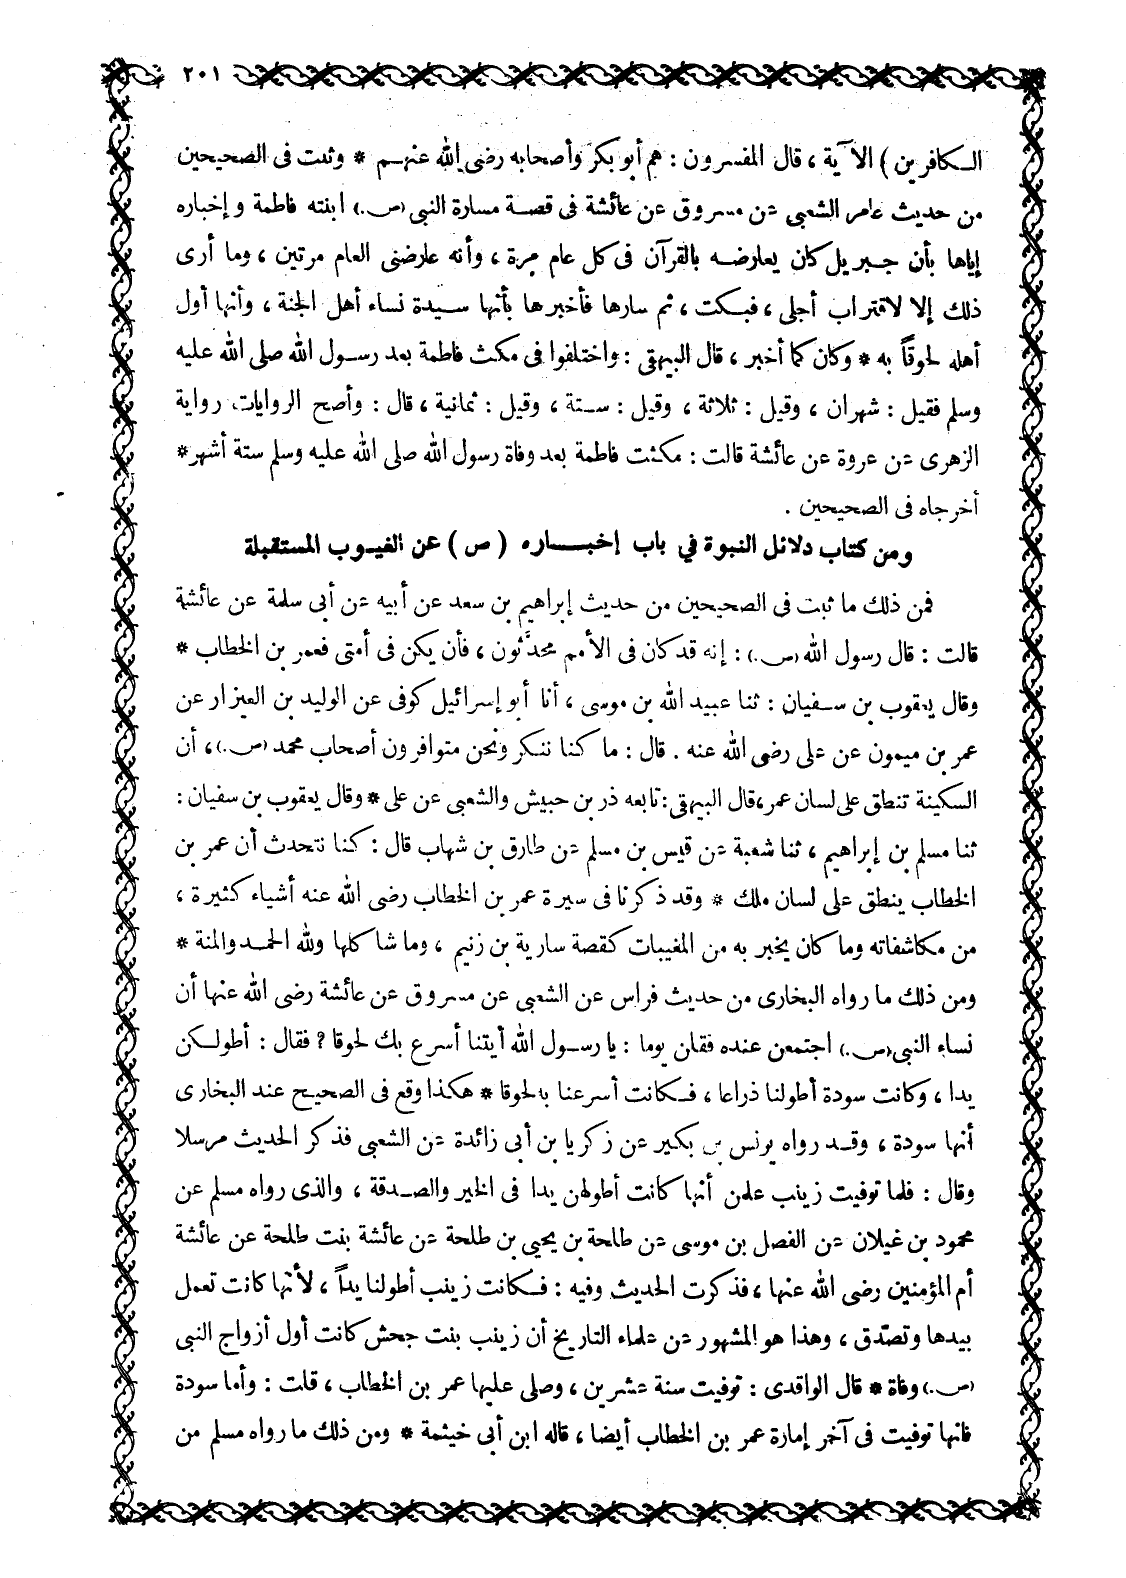 ٢٠١
الكافرين ) الآية ، قال المفسرون : هم أبو بكر وأصحابه رضى الله عنهم * وثبت فى الصحيحين
من حديث عامر الشعبى عن مسروق عن عائشة فى قصة مسارة النبى (ص.) ابنته فاطمة و إخباره
إياها بأن جبريل كان يعارضه بالقرآن فى كل عام مرة ، وأنه عارضنى العام مرتين ، وما أرى
ذلك إلا لاقتراب أجلى ، فبكت ، ثم سارها فأخبرها بأنها سيدة نساء أهل الجنة ، وأنها أول
أهله لحوقاً به * وكان كما أخبر ، قال البيهقى : واختلفوا فى مكث فاطمة بعد رسول الله صلى الله عليه
وسلم فقيل : شهران ، وقيل : ثلاثة ، وقيل : ستة ، وقيل : ثمانية ، قال : وأصح الروايات رواية
الزهرى عن عروة عن عائشة قالت : مكثت فاطمة بعد وفاة رسول الله صلى الله عليه وسلم ستة أشهر *
أخرجاه فى الصحيحين .
ومن كتاب دلائل النبوة في باب إخباره ( ص ) عن الغيوب المستقبلة
فمن ذلك ما ثبت فى الصحيحين من حديث إبراهيم بن سعد عن أبيه عن أبى سلمة عن عائشة
قالت : قال رسول الله (ص.) : إنه قد كان فى الأمم محدَّثون ، فأن يكن فى أمتى فعمر بن الخطاب *
وقال يعقوب بن سفيان : ثنا عبيد الله بن موسى ، أنا أبو إسرائيل كوفى عن الوليد بن العيزار عن
عمر بن ميمون عن على رضى الله عنه . قال : ما كنا ننكر ونحن متوافرون أصحاب محمد (ص.)، أن
السكينة تنطق على لسان عمر، قال البيهقى : تابعه ذر بن حبيش والشعبى عن على * وقال يعقوب بن سفيان :
ثنا مسلم بن إبراهيم ، ثنا شعبة عن قيس بن مسلم عن طارق بن شهاب قال : كنا نتحدث أن عمر بن
الخطاب ينطق على لسان ملك * وقد ذكرنا فى سيرة عمر بن الخطاب رضى الله عنه أشياء كثيرة ،
من مكاشفاته وما كان يخبر به من المغيبات كقصة سارية بن زنيم ، وما شاكلها ولله الحمد والمنة *
ومن ذلك ما رواه البخارى من حديث فراس عن الشعبى عن مسروق عن عائشة رضى الله عنها أن
نساء النبى (ص.) اجتمعن عنده فقلن يوما : يا رسول الله أيتنا أسرع بك لحوقا ؟ فقال : أطولكن
يدا ، وكانت سودة أطولنا ذراعا ، فكانت أسرعنا به لحوقا * هكذا وقع فى الصحيح عند البخارى
أنها سودة ، وقد رواه يونس بن بكير عن زكريا بن أبى زائدة عن الشعبى فذكر الحديث مرسلا
وقال : فلما توفيت زينب علمن أنها كانت أطولهن يدا فى الخير والصدقة ، والذى رواه مسلم عن
محمود بن غيلان عن الفضل بن موسى عن طلحة بن يحيى بن طلحة عن عائشة بنت طلحة عن عائشة
أم المؤمنين رضى الله عنها ، فذكرت الحديث وفيه : فكانت زينب أطولنا يداً ، لأنها كانت تعمل
بيدها وتصدق ، وهذا هو المشهور عن علماء التاريخ أن زينب بنت جحش كانت أول أزواج النبى
(ص.) وفاة * قال الواقدى : توفيت سنة عشرين ، وصلى عليها عمر بن الخطاب ، قلت : وأما سودة
فانها توفيت فى آخر إمارة عمر بن الخطاب أيضا ، قاله ابن أبى خيثمة * ومن ذلك ما رواه مسلم من